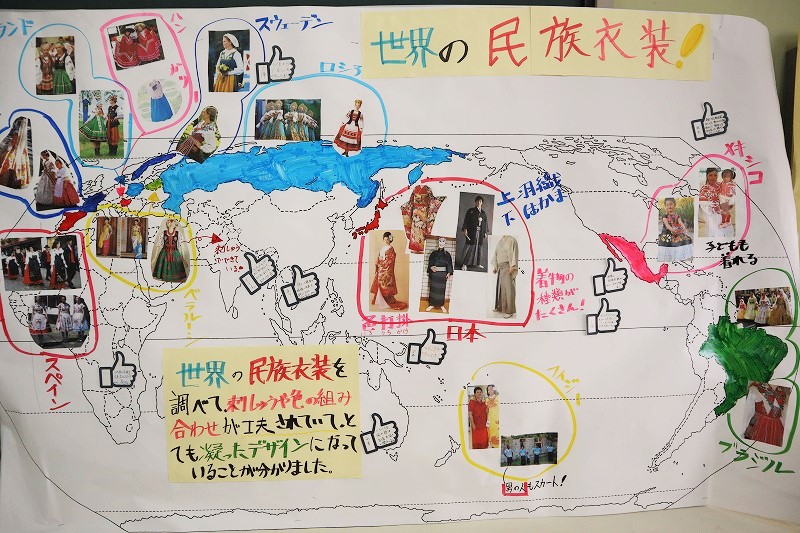 世界の民族衣装!
ランド
ハンガリー
スウェーデン
ロシア
メキシコ
子どもも
着れる
上 羽織
下 はかま
着物の
種類が
たくさん!
日本
刺しゅう
でできて
いる。
ベラルーシ
スペイン
世界の民族衣装を
調べて、刺しゅうや色の組み
合わせが工夫されていて、と
ても凝ったデザインになって
いることが分かりました。
フィジー
男の人もスカート!
ブラジル